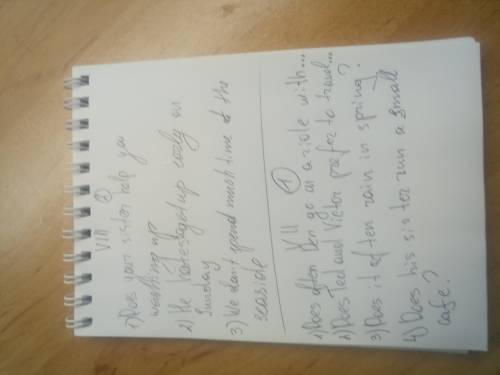 VIII 2
1) Does your sister help you
washing up
2) He hates get up early on
Sunday
3) We don't spend much time at the
seaside
VII 1
1) Does often Ben go on a ride with...
2) Does Ted and Victor prefer to travel...
3) Does it often rain in spring?
4) Does his sister run a small
cafe?